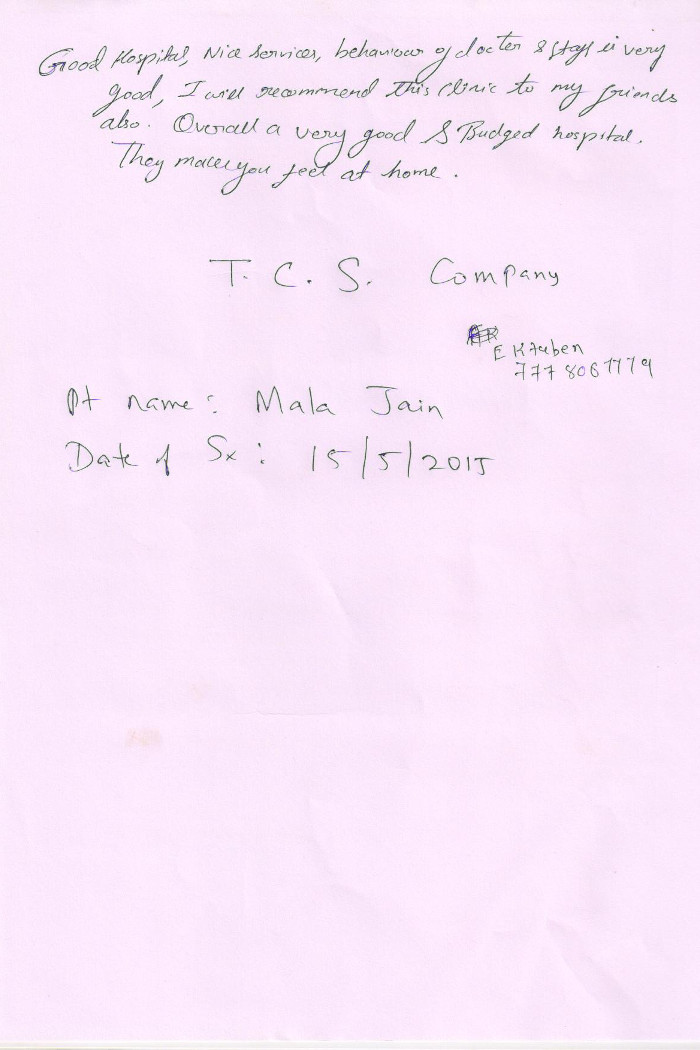 Good Hospital, Nice services, behaviour of docter & staff is very
good, I will recommend this clinic to my friends
also. Overall a very good & Budged hospital.
They make you feel at home.
T. C. S. Company
777 806 1779
Pt name: Mala Jain
Date of Sx: 15/5/2015